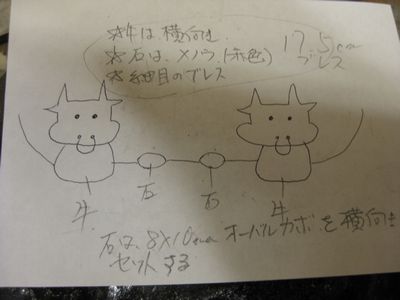 *牛は横向き
*石は、メノウ(赤色)
*細目のブレス
17.5cm
ブレス
石
石
牛
牛
石は、8×10mm オーバルカボを横向き
セットする